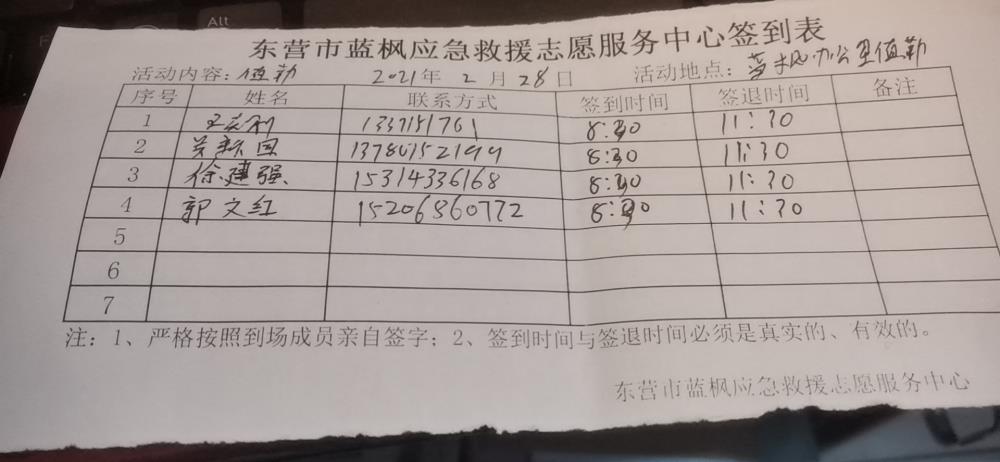 Alt
东营市蓝枫应急救援志愿服务中心签到表
活动内容：值勤 2021年 2 月 28 日 活动地点：蓝枫办公室值勤
序号 姓名 联系方式 签到时间 签退时间 备注
1 8:30 11:30
2 8:30 11:30
3 徐建强 15314336168 8:30 11:30
4 郭文红 15206860772 8:30 11:30
5
6
7
注：1、严格按照到场成员亲自签字；2、签到时间与签退时间必须是真实的、有效的。
东营市蓝枫应急救援志愿服务中心